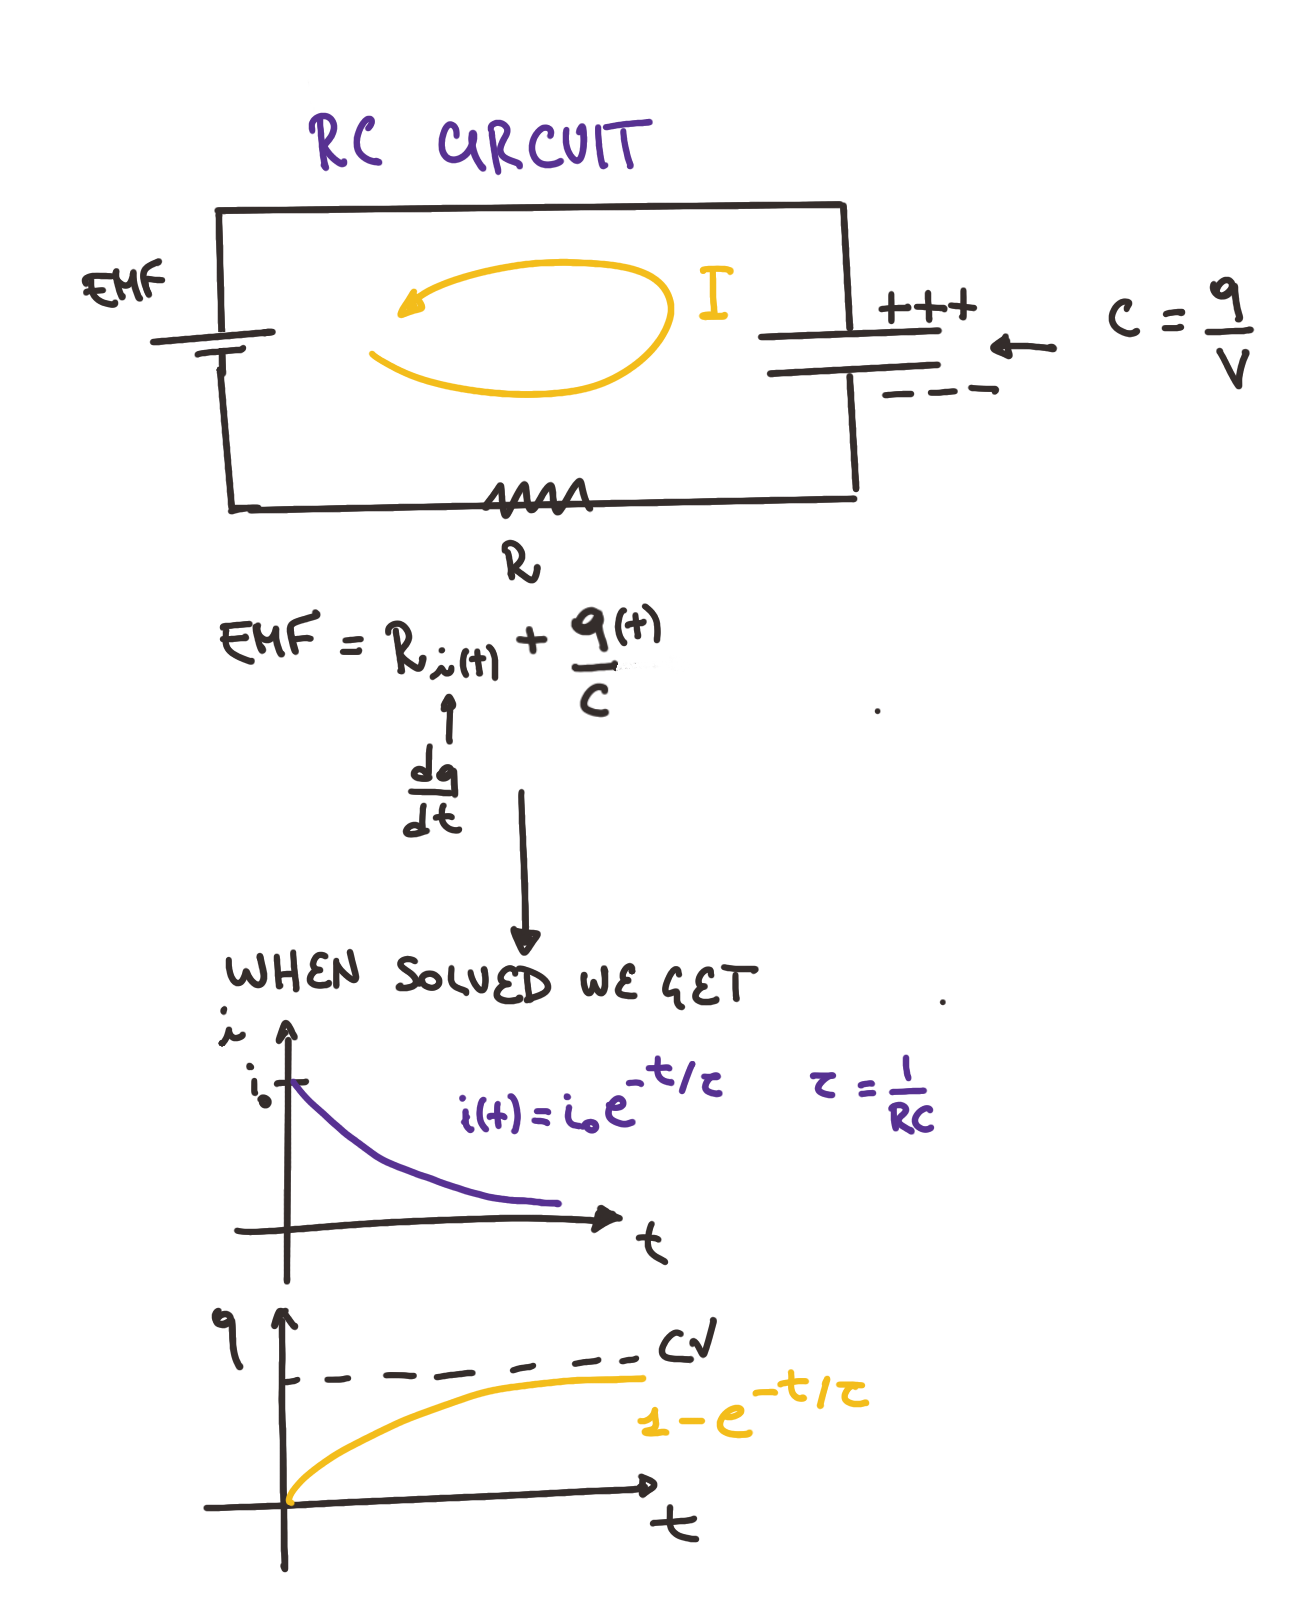 RC CIRCUIT
EMF
I
+++
---
C = q/V
R
EMF = R i(t) + q(t)/C
dq/dt
WHEN SOLVED WE GET
i
i₀
i(t) = i₀ e^-t/τ
τ = 1/RC
t
q
CV
1 - e^-t/τ
t